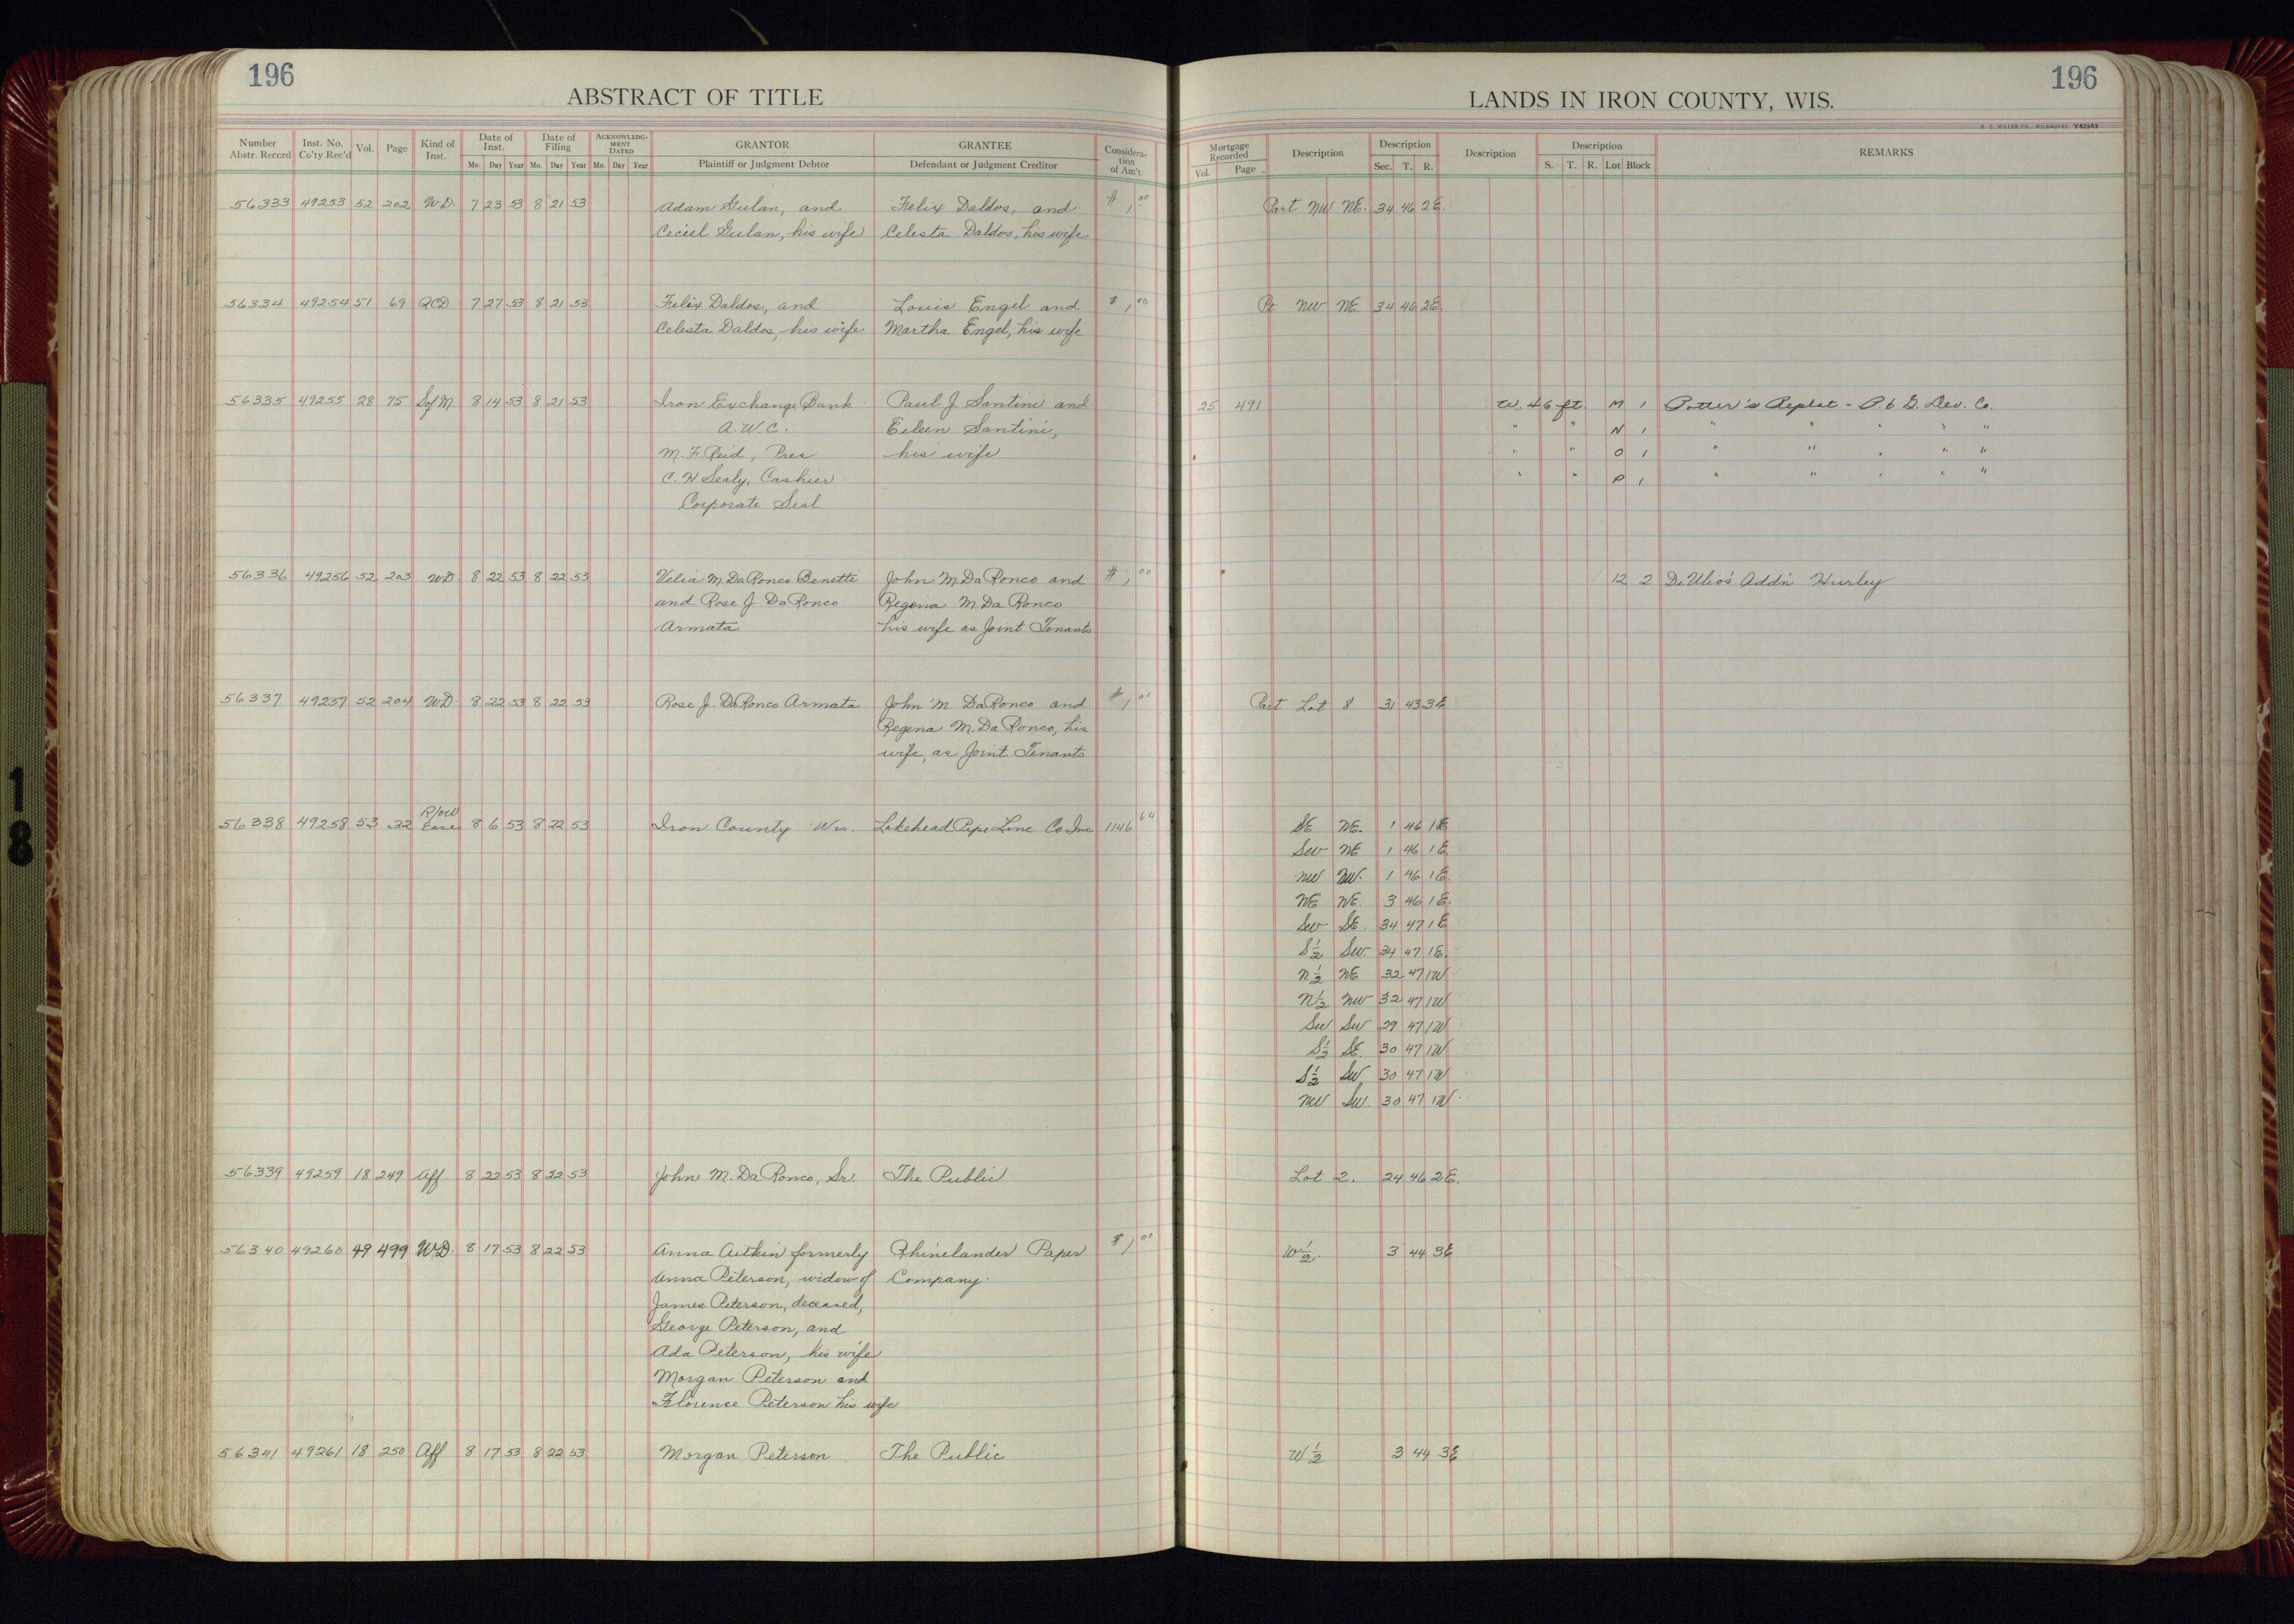 196
ABSTRACT OF TITLE
Number Abstr. Record Inst. No. Co'ty Rec'd Vol. Page Kind of Inst. Date of Inst. Date of Filing ACKNOWLEDGMENT DATED GRANTOR GRANTEE Consideration of Am't
Mo. Day Year Mo. Day Year Mo. Day Year Plaintiff or Judgment Debtor Defendant or Judgment Creditor
56333 49253 52 202 W.D. 7 23 53 8 21 53 Adam Gulan, and Felix Daldos, and $1,00
Ceciel Gulan, his wife Celesta Daldos, his wife
56334 49254 51 69 QCD 7 27 53 8 21 53 Felix Daldos, and Louis Engel and $1,00
Celesta Daldos, his wife Martha Engel, his wife
56335 49255 28 75 SofM 8 14 53 8 21 53 Iron Exchange Bank Paul J. Santini and
A.W.C. Eileen Santini,
M.F. Reid, Pres his wife
C.H Sealy, Cashier
Corporate Seal
56336 49256 52 203 WD 8 22 53 8 22 53 Velia M. DaRonco Benetti John M. DaRonco and $1,00
and Rose J DaRonco Regena M. Da Ronco
Armata his wife as Joint Tenants
56337 49257 52 204 WD 8 22 53 8 22 53 Rose J. DaRonco Armata John M. DaRonco and $1,00
Regena M. Da Ronco, his
wife, as Joint Tenants
R/ow
56338 49258 53 32 Ease 8 6 53 8 22 53 Iron County Wis. Lakehead Pipe Line Co Inc 1146 64
56339 49259 18 249 Aff. 8 22 53 8 22 53 John M. Da Ronco, Sr. The Public
56340 49260 49 499 W.D. 8 17 53 8 22 53 Anna Aitkin formerly Rhinelander Paper $1,00
Anna Peterson, widow of Company.
James Peterson, deceased,
George Peterson, and
Ada Peterson, his wife
Morgan Peterson and
Florence Peterson his wife
56341 49261 18 250 Aff 8 17 53 8 22 53 Morgan Peterson The Public
196
LANDS IN IRON COUNTY, WIS.
H. C. MILLER CO., MILWAUKEE Y62963
Mortgage Recorded Description Description Description Description REMARKS
Vol. Page Sec. T. R. S. T. R. Lot Block
Part NW NE. 34 46 2E.
Pt NW NE. 34 46 2E.
25 491 W. 46 ft. M 1 Potter's Replat - P. & G. Dev. Co.
" " N 1 " " " " "
" " O 1 " " " " "
" " P 1 " " " " "
12 2 DeUlio's Add'n Hurley
Part Lot 8 31 43 3E
SE NE. 1 46 1E
SW NE 1 46 1E.
NW NW. 1 46 1E.
NE NE. 3 46 1E.
SW SE. 34 47 1E
S½ SW. 34 47 1E.
N½ NE 32 47 1W
N½ NW 32 47 1W
SW SW 29 47 1W
S½ SE. 30 47 1W
S½ SW 30 47 1W
NW SW. 30 47 1W
Lot 2. 24 46 2E.
W½. 3 44 3E
W½ 3 44 3E
18